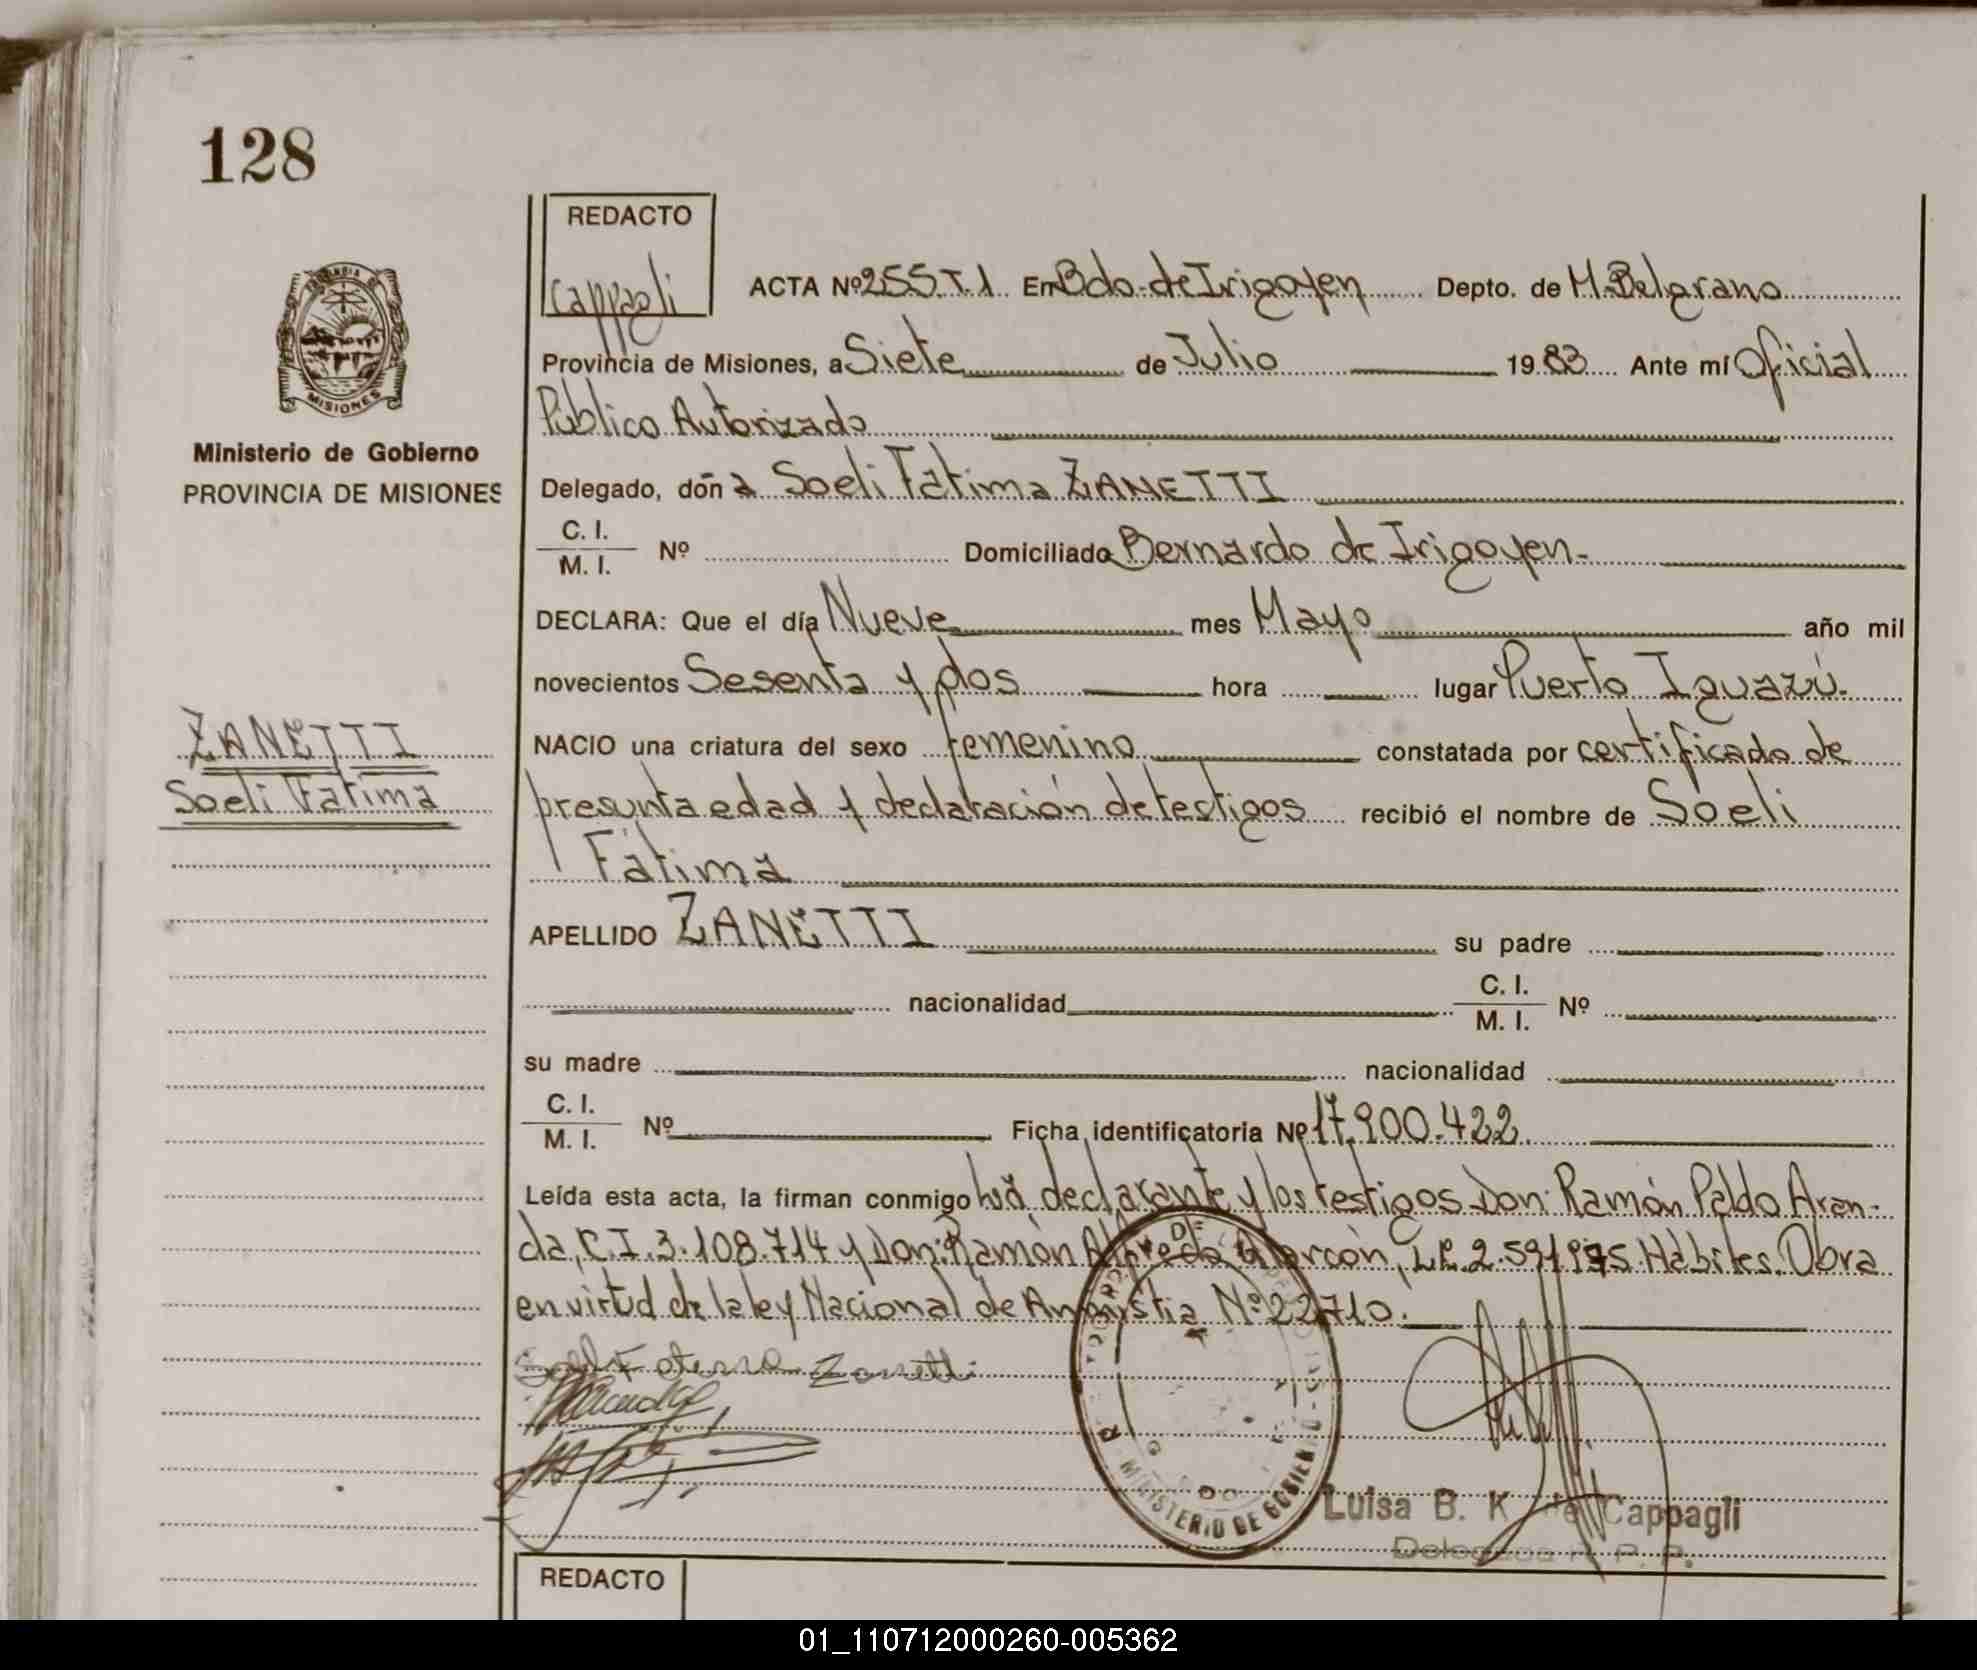 128
REDACTO
Cappagli
ACTA Nº 255 T.1 En Bdo. de Irigoyen Depto. de M. Belgrano
Provincia de Misiones, a Siete de Julio 1983 Ante mí Oficial
Público Autorizado
MISIONES
Ministerio de Gobierno
PROVINCIA DE MISIONES
Delegado, don a Soeli Fatima ZANETTI
C. I.
M. I. Nº Domiciliada Bernardo de Irigoyen.
DECLARA: Que el día Nueve mes Mayo año mil
novecientos Sesenta y dos hora lugar Puerto Iguazú.
ZANETTI
Soeli Fatima
NACIO una criatura del sexo femenino constatada por certificado de
presunta edad y declaración de testigos recibió el nombre de Soeli
Fatima
APELLIDO ZANETTI su padre
nacionalidad C. I.
M. I. Nº
su madre nacionalidad
C. I.
M. I. Nº Ficha identificatoria Nº 17.900.422.
Leída esta acta, la firman conmigo la declarante y los testigos Don: Ramón Aran-
da, C.I. 3.108.714 y Don: Ramón Alarcón, Hábiles. Obra
en virtud de la ley Nacional de Amnistia Nº 22710.
Fatima Zanetti
MINISTERIO DE GOBIERNO
Luisa B. K. de Cappagli
Delegada R. P. P.
REDACTO
01_110712000260-005362